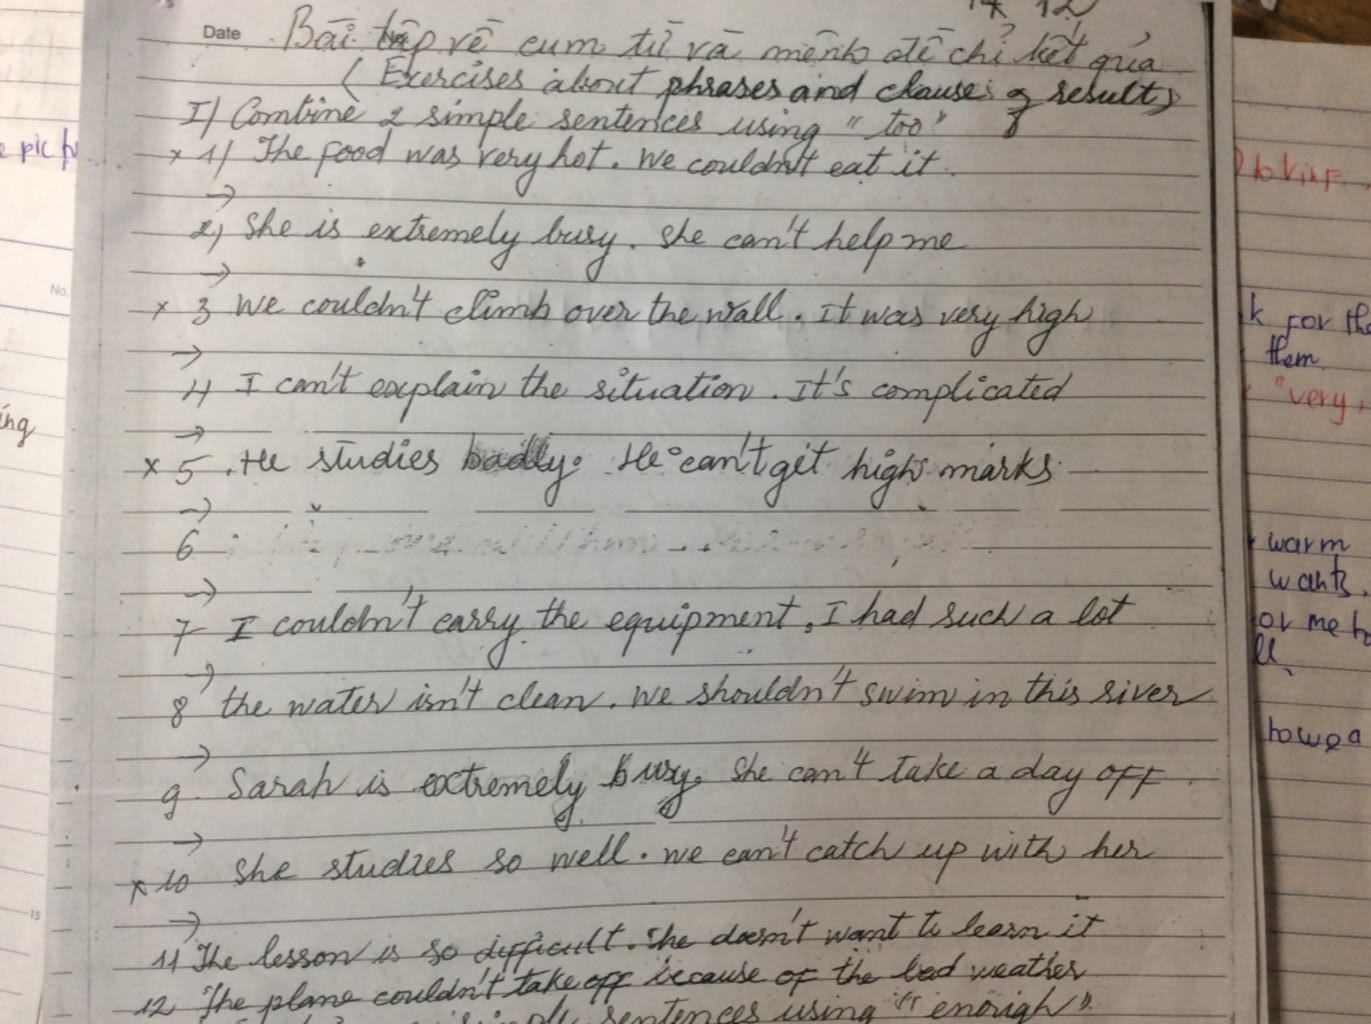 14 12
Date Bài tập về cum từ và mệnh đề chỉ kết qủa
(Exercises about phrases and clauses of result)
I) Combine 2 simple sentences using "too"
x 1) The food was very hot. We couldn't eat it.
→
2) She is extremely busy. She can't help me
→
x 3 We couldn't climb over the wall. It was very high
→
4) I can't explain the situation. It's complicated
→
x 5. He studies badly. He can't get high marks
→
6
→
7 I couldn't carry the equipment, I had such a lot
→
8 the water isn't clean. We shouldn't swim in this river
→
9. Sarah is extremely busy. She can't take a day off.
→
x 10 She studies so well. We can't catch up with her
→
11 The lesson is so difficult. She doesn't want to learn it
12 The plane couldn't take off because of the bad weather
simple sentences using "enough"
e pic
No.
ing
15
to V inf.
k for the
them.
"very,
warm
wants.
or me to